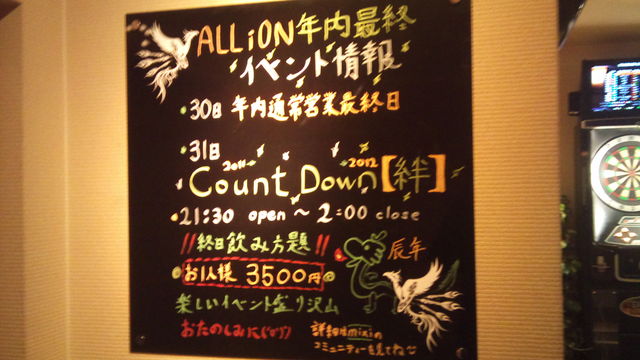 ALLiON年内最終
イベント情報
30日 年内通常営業最終日
31日
2011→ →2012
Count Down【絆】
21:30 open ～ 2:00 close
!!終日飲み方題!!
お1人様 3500円
辰年
楽しいイベント盛り沢山
おたのしみに
詳細はmixiの
コミュニティーを見てね